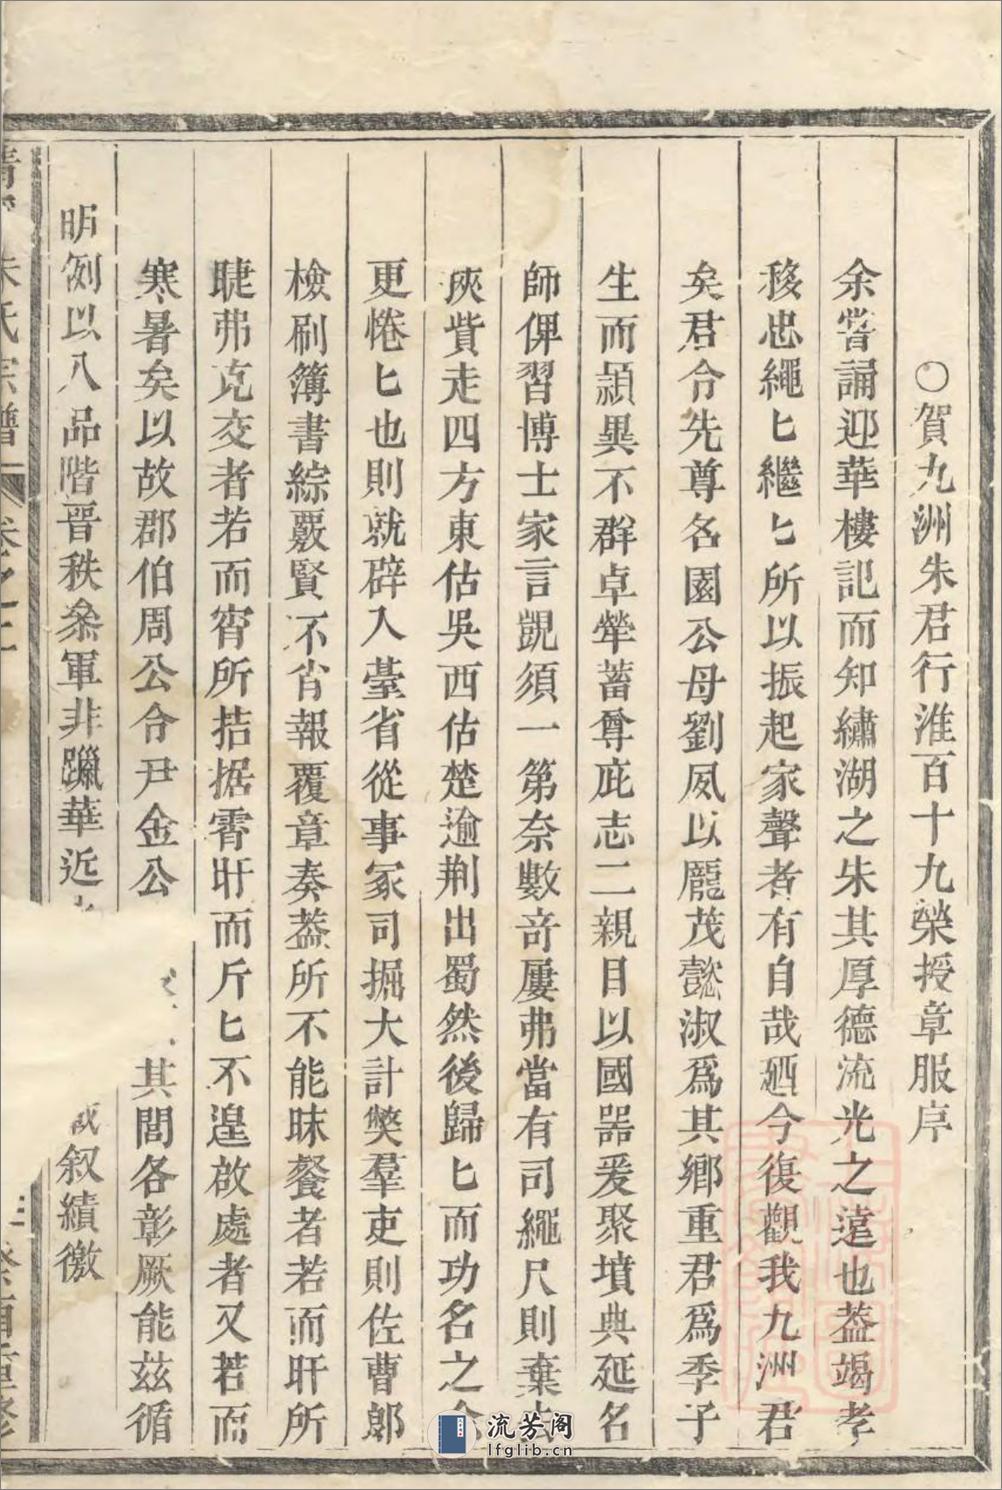 ○賀九洲朱君行淮百十九榮授章服序
余嘗誦迎華樓記而知繡湖之朱其厚德流光之遠也葢竭孝
移忠繩匕繼匕所以振起家聲者有自哉廼今復觀我九洲君
矣君令先尊名園公母劉夙以龐茂懿淑爲其鄉重君爲季子
生而頴異不群卓犖蓄尊庇志二親目以國器爰聚墳典延名
師俾習博士家言覬須一第奈數竒屢弗當有司繩尺則棄
庾貲走四方東估吳西估楚逾荆出蜀然後歸匕而功名之
更惓匕也則就辟入臺省從事冡司掘大計獘羣吏則佐曹郎
檢刷簿書綜覈賢不肖報覆章奏葢所不能昧餐者若而旰所
睫弗克交者若而宵所拮据霄旰而斤匕不遑啟處者又若而
寒暑矣以故郡伯周公令尹金公 其閭各彰厥能兹循
明例以八品階晉秩叅軍非躐華近 叙績徼
朱氏宗譜 卷之二 重修
流芳阁
lfglib.cn